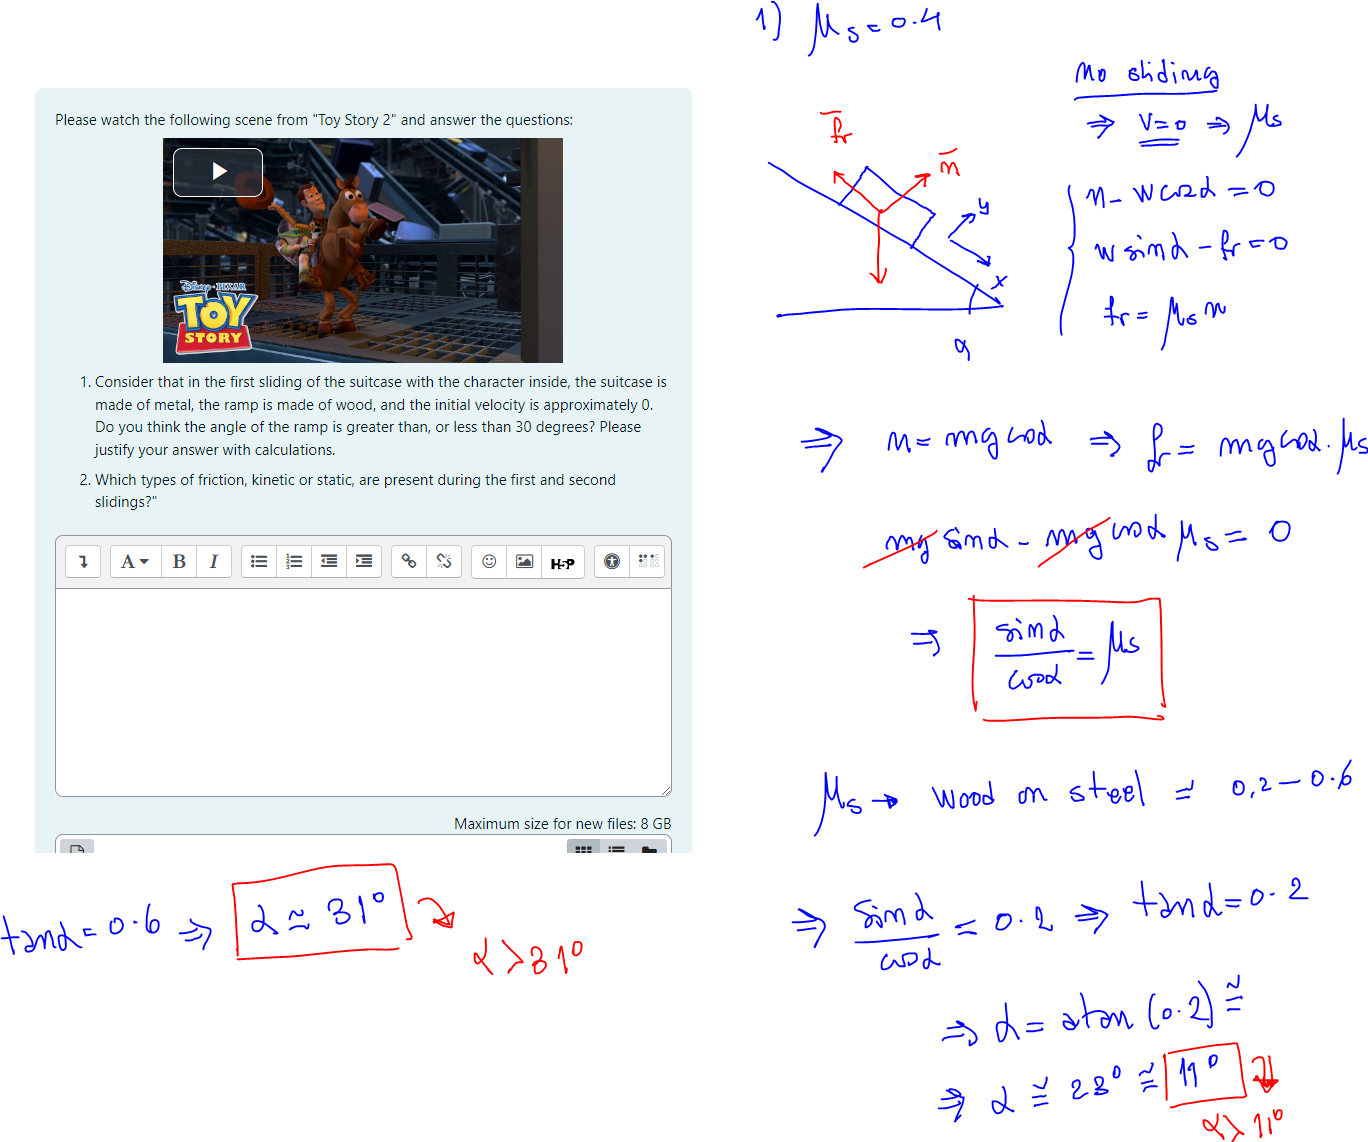 Please watch the following scene from "Toy Story 2" and answer the questions:
Disney·PIXAR
TOY
STORY
1. Consider that in the first sliding of the suitcase with the character inside, the suitcase is
made of metal, the ramp is made of wood, and the initial velocity is approximately 0.
Do you think the angle of the ramp is greater than, or less than 30 degrees? Please
justify your answer with calculations.
2. Which types of friction, kinetic or static, are present during the first and second
slidings?"
A B I H-P
Maximum size for new files: 8 GB
1) μs = 0.4
No sliding
⇒ v=0 ⇒ μs
fr
n
y
x
α
n - w cosα = 0
w sinα - fr = 0
fr = μs n
⇒ n = mg cosα ⇒ fr = mg cosα · μs
mg sinα - mg cosα μs = 0
⇒ sinα/cosα = μs
μs → wood on steel ≃ 0,2 - 0.6
⇒ sinα/cosα = 0.2 ⇒ tanα = 0.2
⇒ α = atan (0.2) ≅
⇒ α ≅ 23° ≅ 11°
α > 11°
tanα = 0.6 ⇒ α ≃ 31°
α > 31°